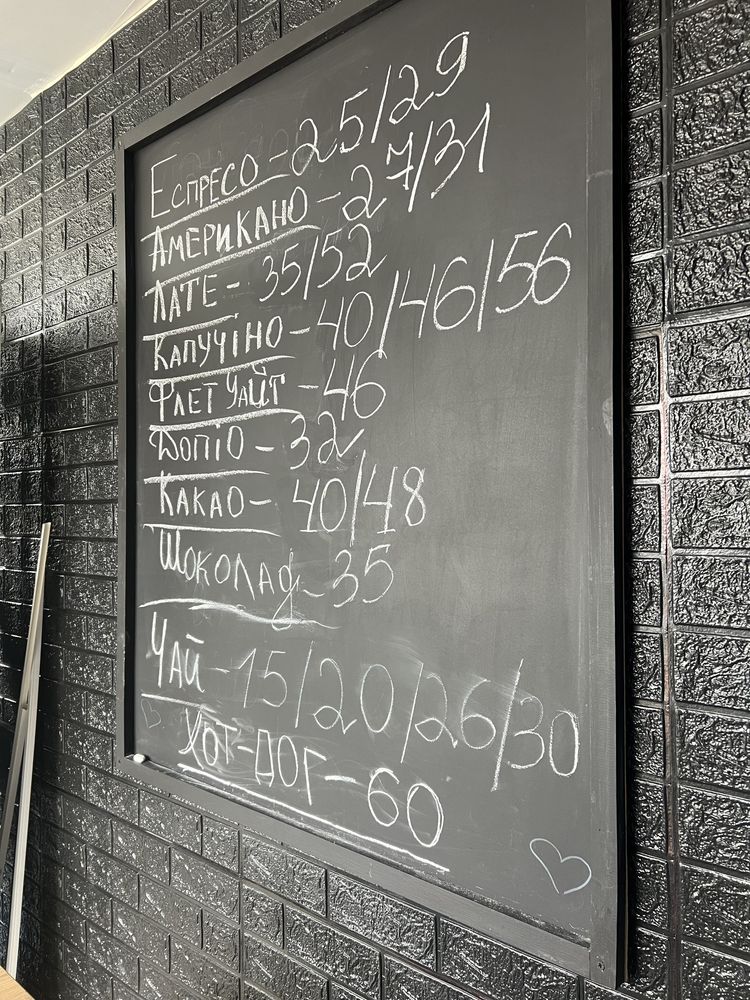 Еспресо - 25/29
Американо - 27/31
Лате - 35/52
Капучіно - 40/46/56
Флет Уайт - 46
Допіо - 32
Какао - 40/48
Шоколад - 35
Чай - 15/20/26/30
Хот-дог - 60